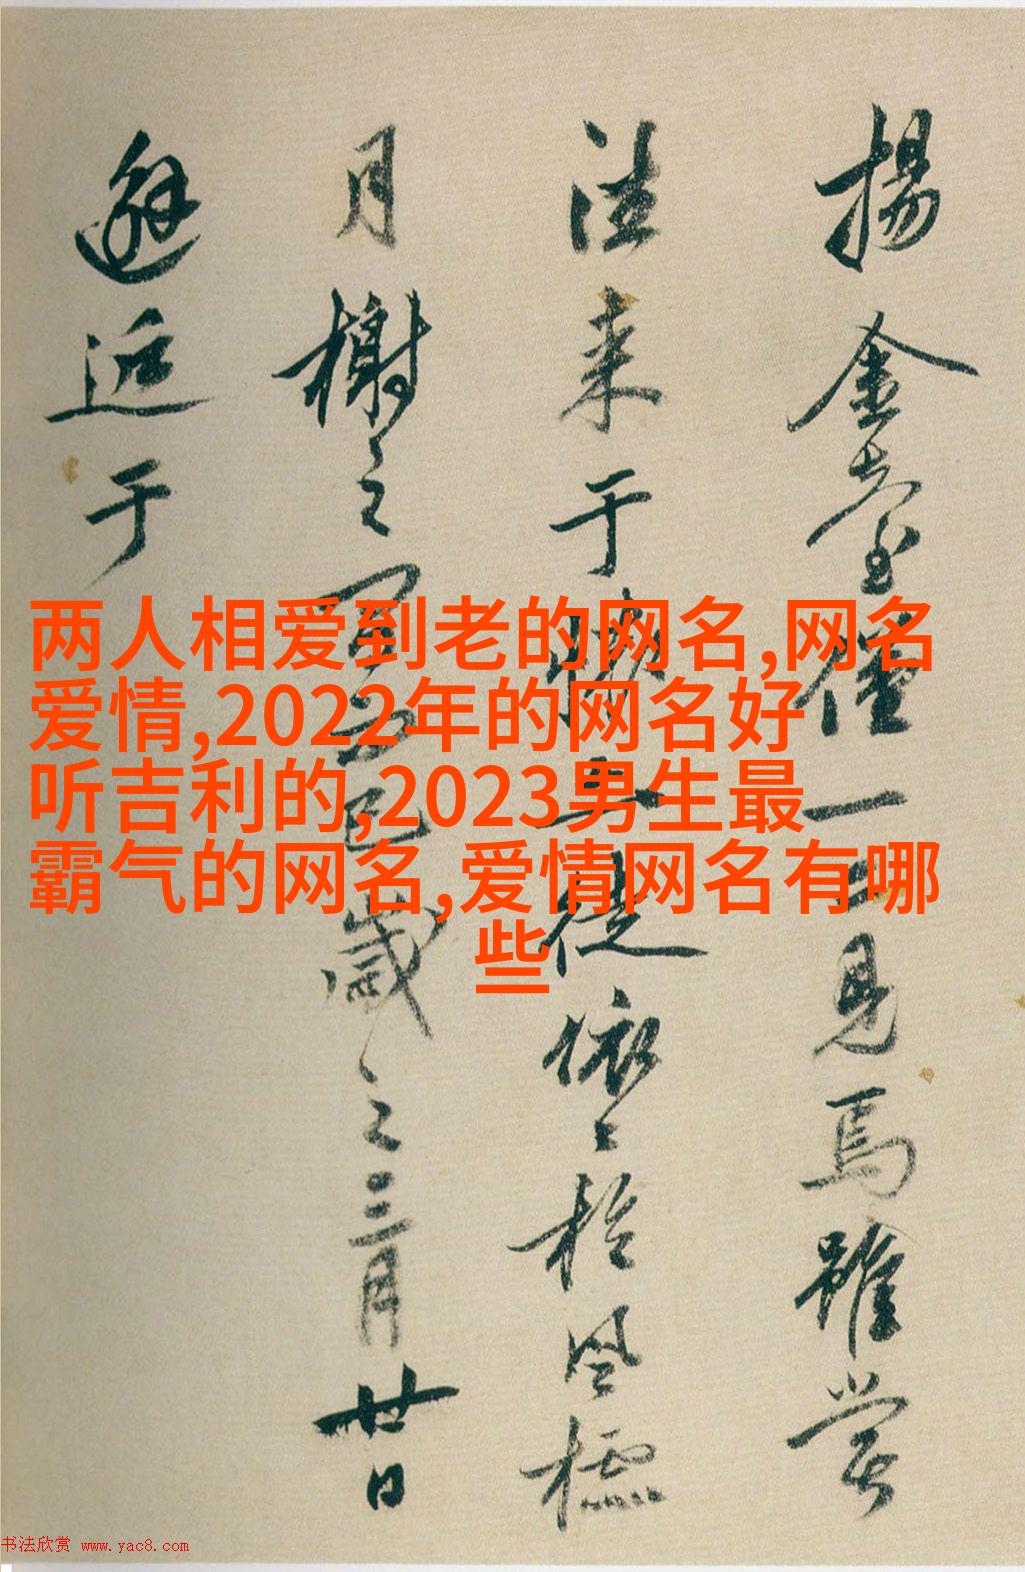 揚金臺僅一二見焉雖嘗
往来于懐二徒依々於風標
月榭之
歲之三月廿日
邂逅于
两人相爱到老的网名,网名
爱情,2022年的网名好
听吉利的,2023男生最
霸气的网名,爱情网名有哪
些
书法欣赏 www.yac8.com